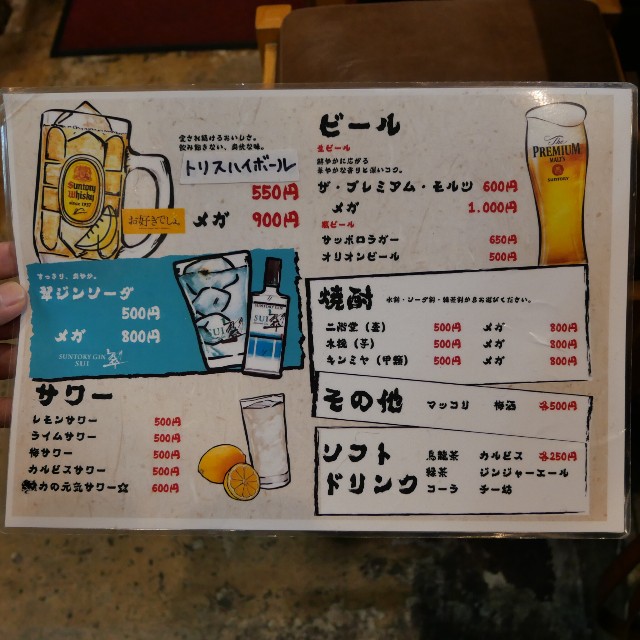 愛され続けるおいしさ。
飲み飽きない、爽快な味。
トリスハイボール
550円
お好きでしょ
メガ 900円
Suntory
Whisky
since 1937
すっきり、爽やか。
翠ジンソーダ
500円
メガ 800円
SUNTORY GIN
SUI 翠
SUI 翠
サワー
レモンサワー 500円
ライムサワー 500円
梅サワー 500円
カルピスサワー 500円
力の元気サワー☆ 600円
ビール
生ビール
華やかな香りと深いコク。
ザ・プレミアム・モルツ 600円
メガ 1.000円
瓶ビール
サッポロラガー 650円
オリオンビール 500円
The
PREMIUM
MALT'S
SUNTORY
焼酎 水割・ソーダ割・緑茶割からお選びください。
二階堂（麦） 500円 メガ 800円
（芋） 500円 メガ 800円
キンミヤ（甲類） 500円 メガ 800円
その他 マッコリ 梅酒 各500円
ソフト
ドリンク
烏龍茶 カルピス 各250円
緑茶 ジンジャーエール
コーラ